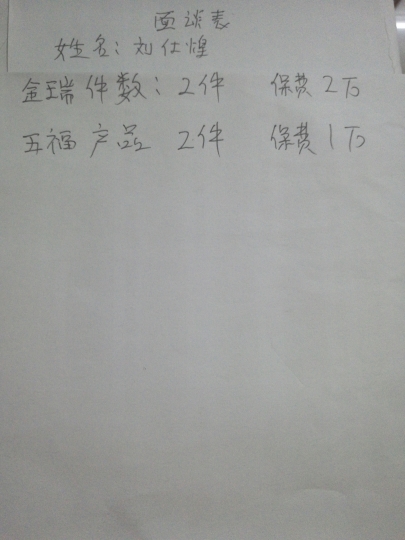 面谈表
姓名：刘仕煌
金瑞件数：2件 保费2万
五福产品 2件 保费1万